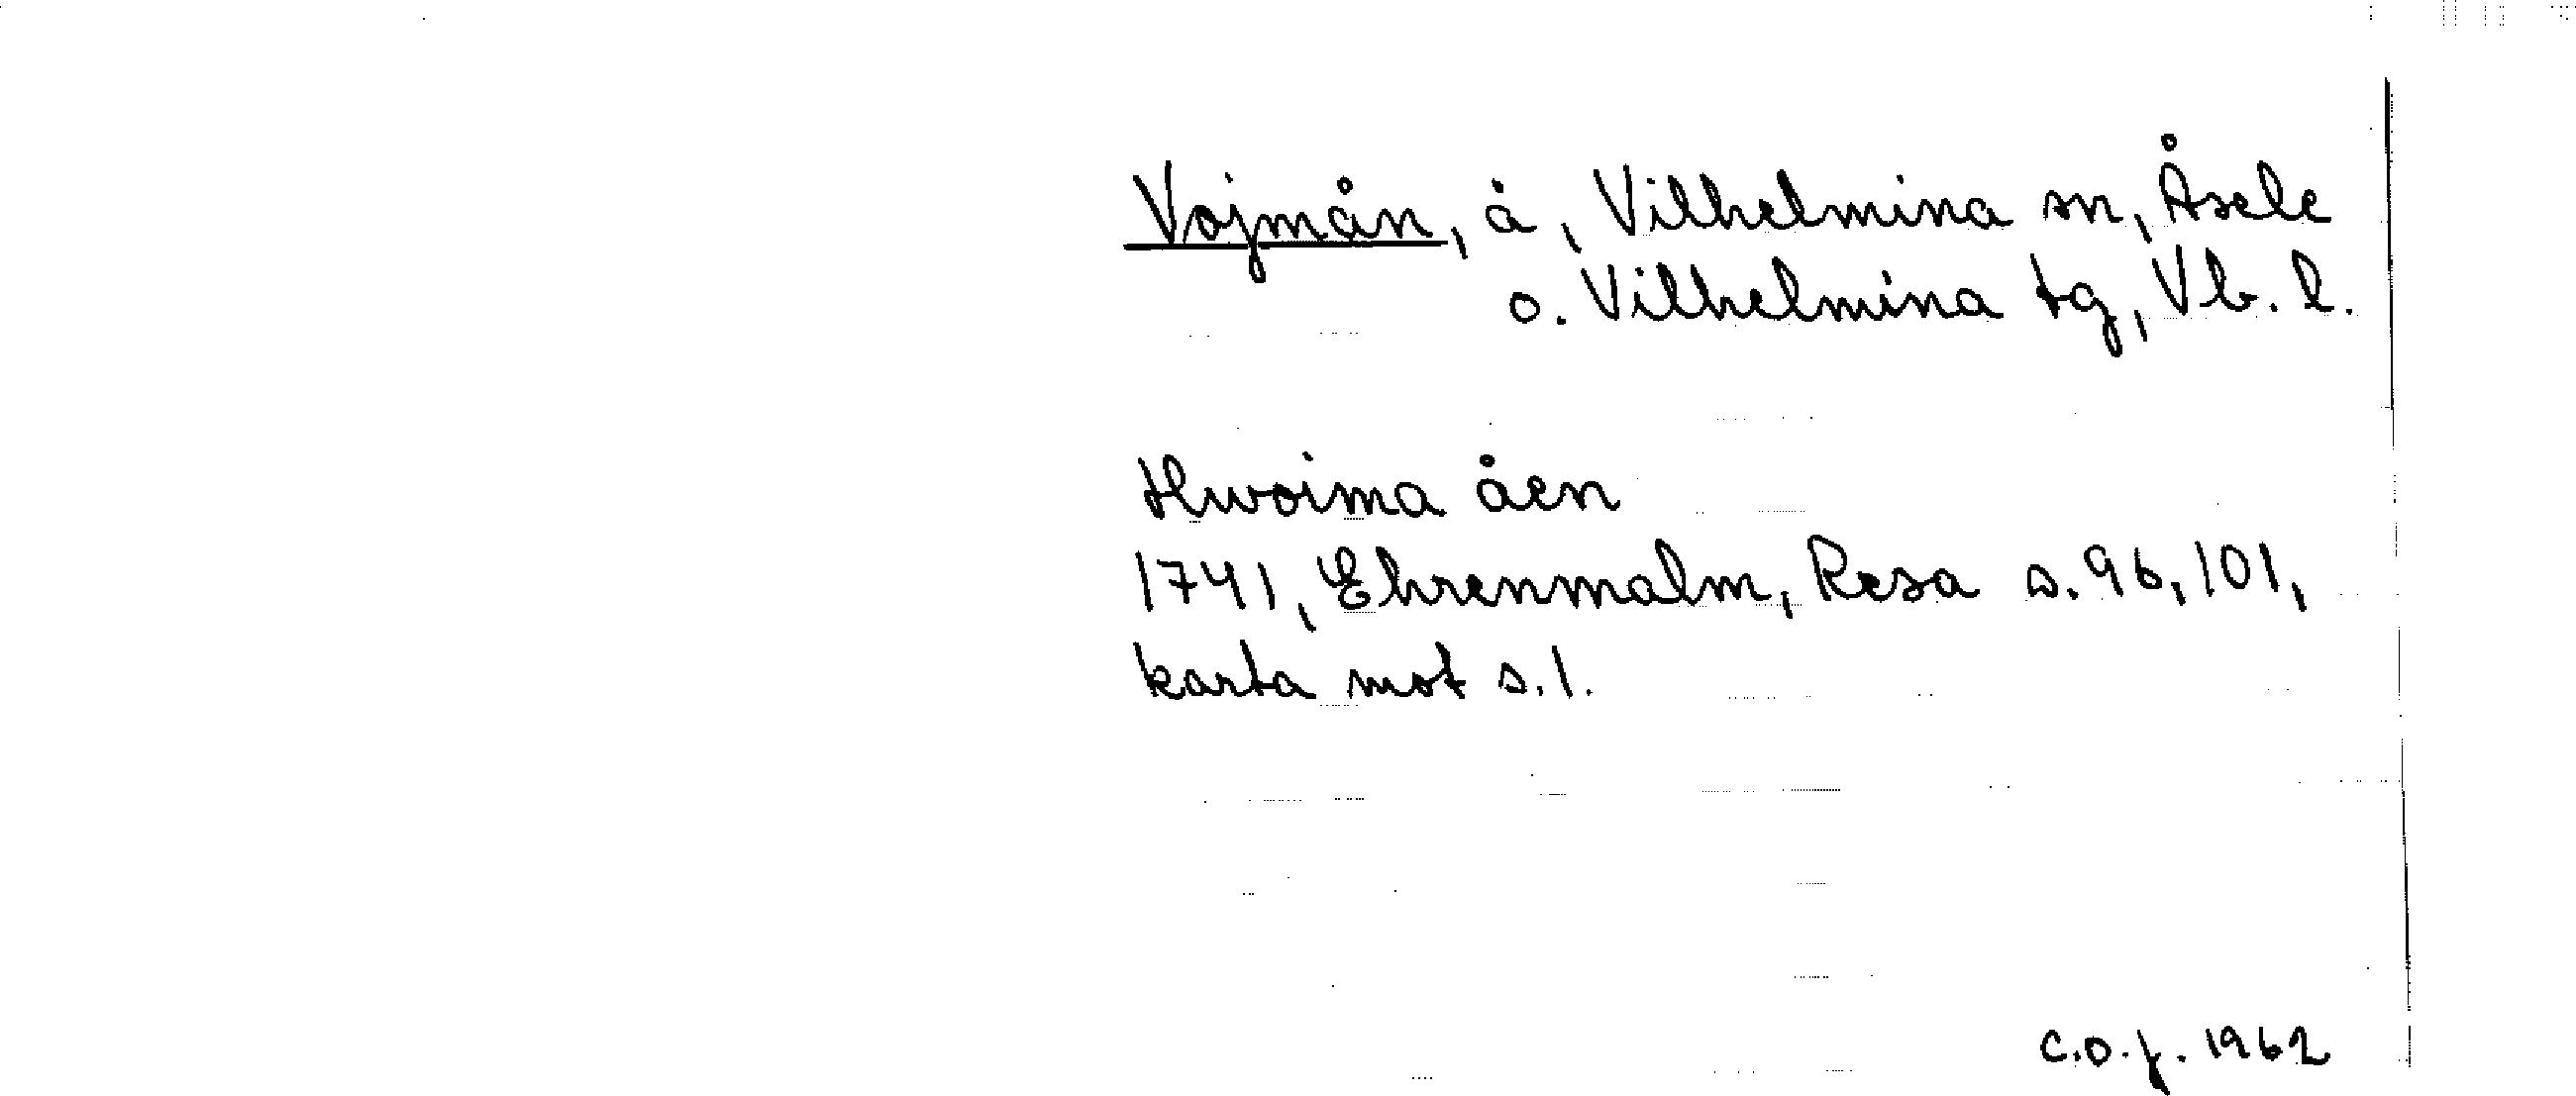 Vojmån, å, Vilhelmina sn, Åsele
o. Vilhelmina tg, Vb. l.
Hwoima åen
1741, Ehrenmalm, Resa s. 96, 101,
karta mot s. 1.
C.O.J. 1962